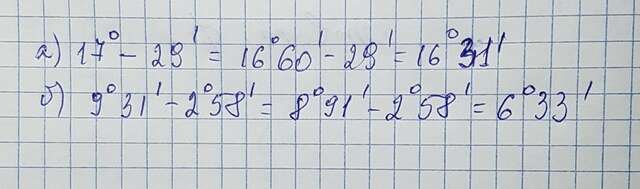 а) 17° - 29' = 16°60' - 29' = 16°31'
б) 9°31' - 2°58' = 8°91' - 2°58' = 6°33'